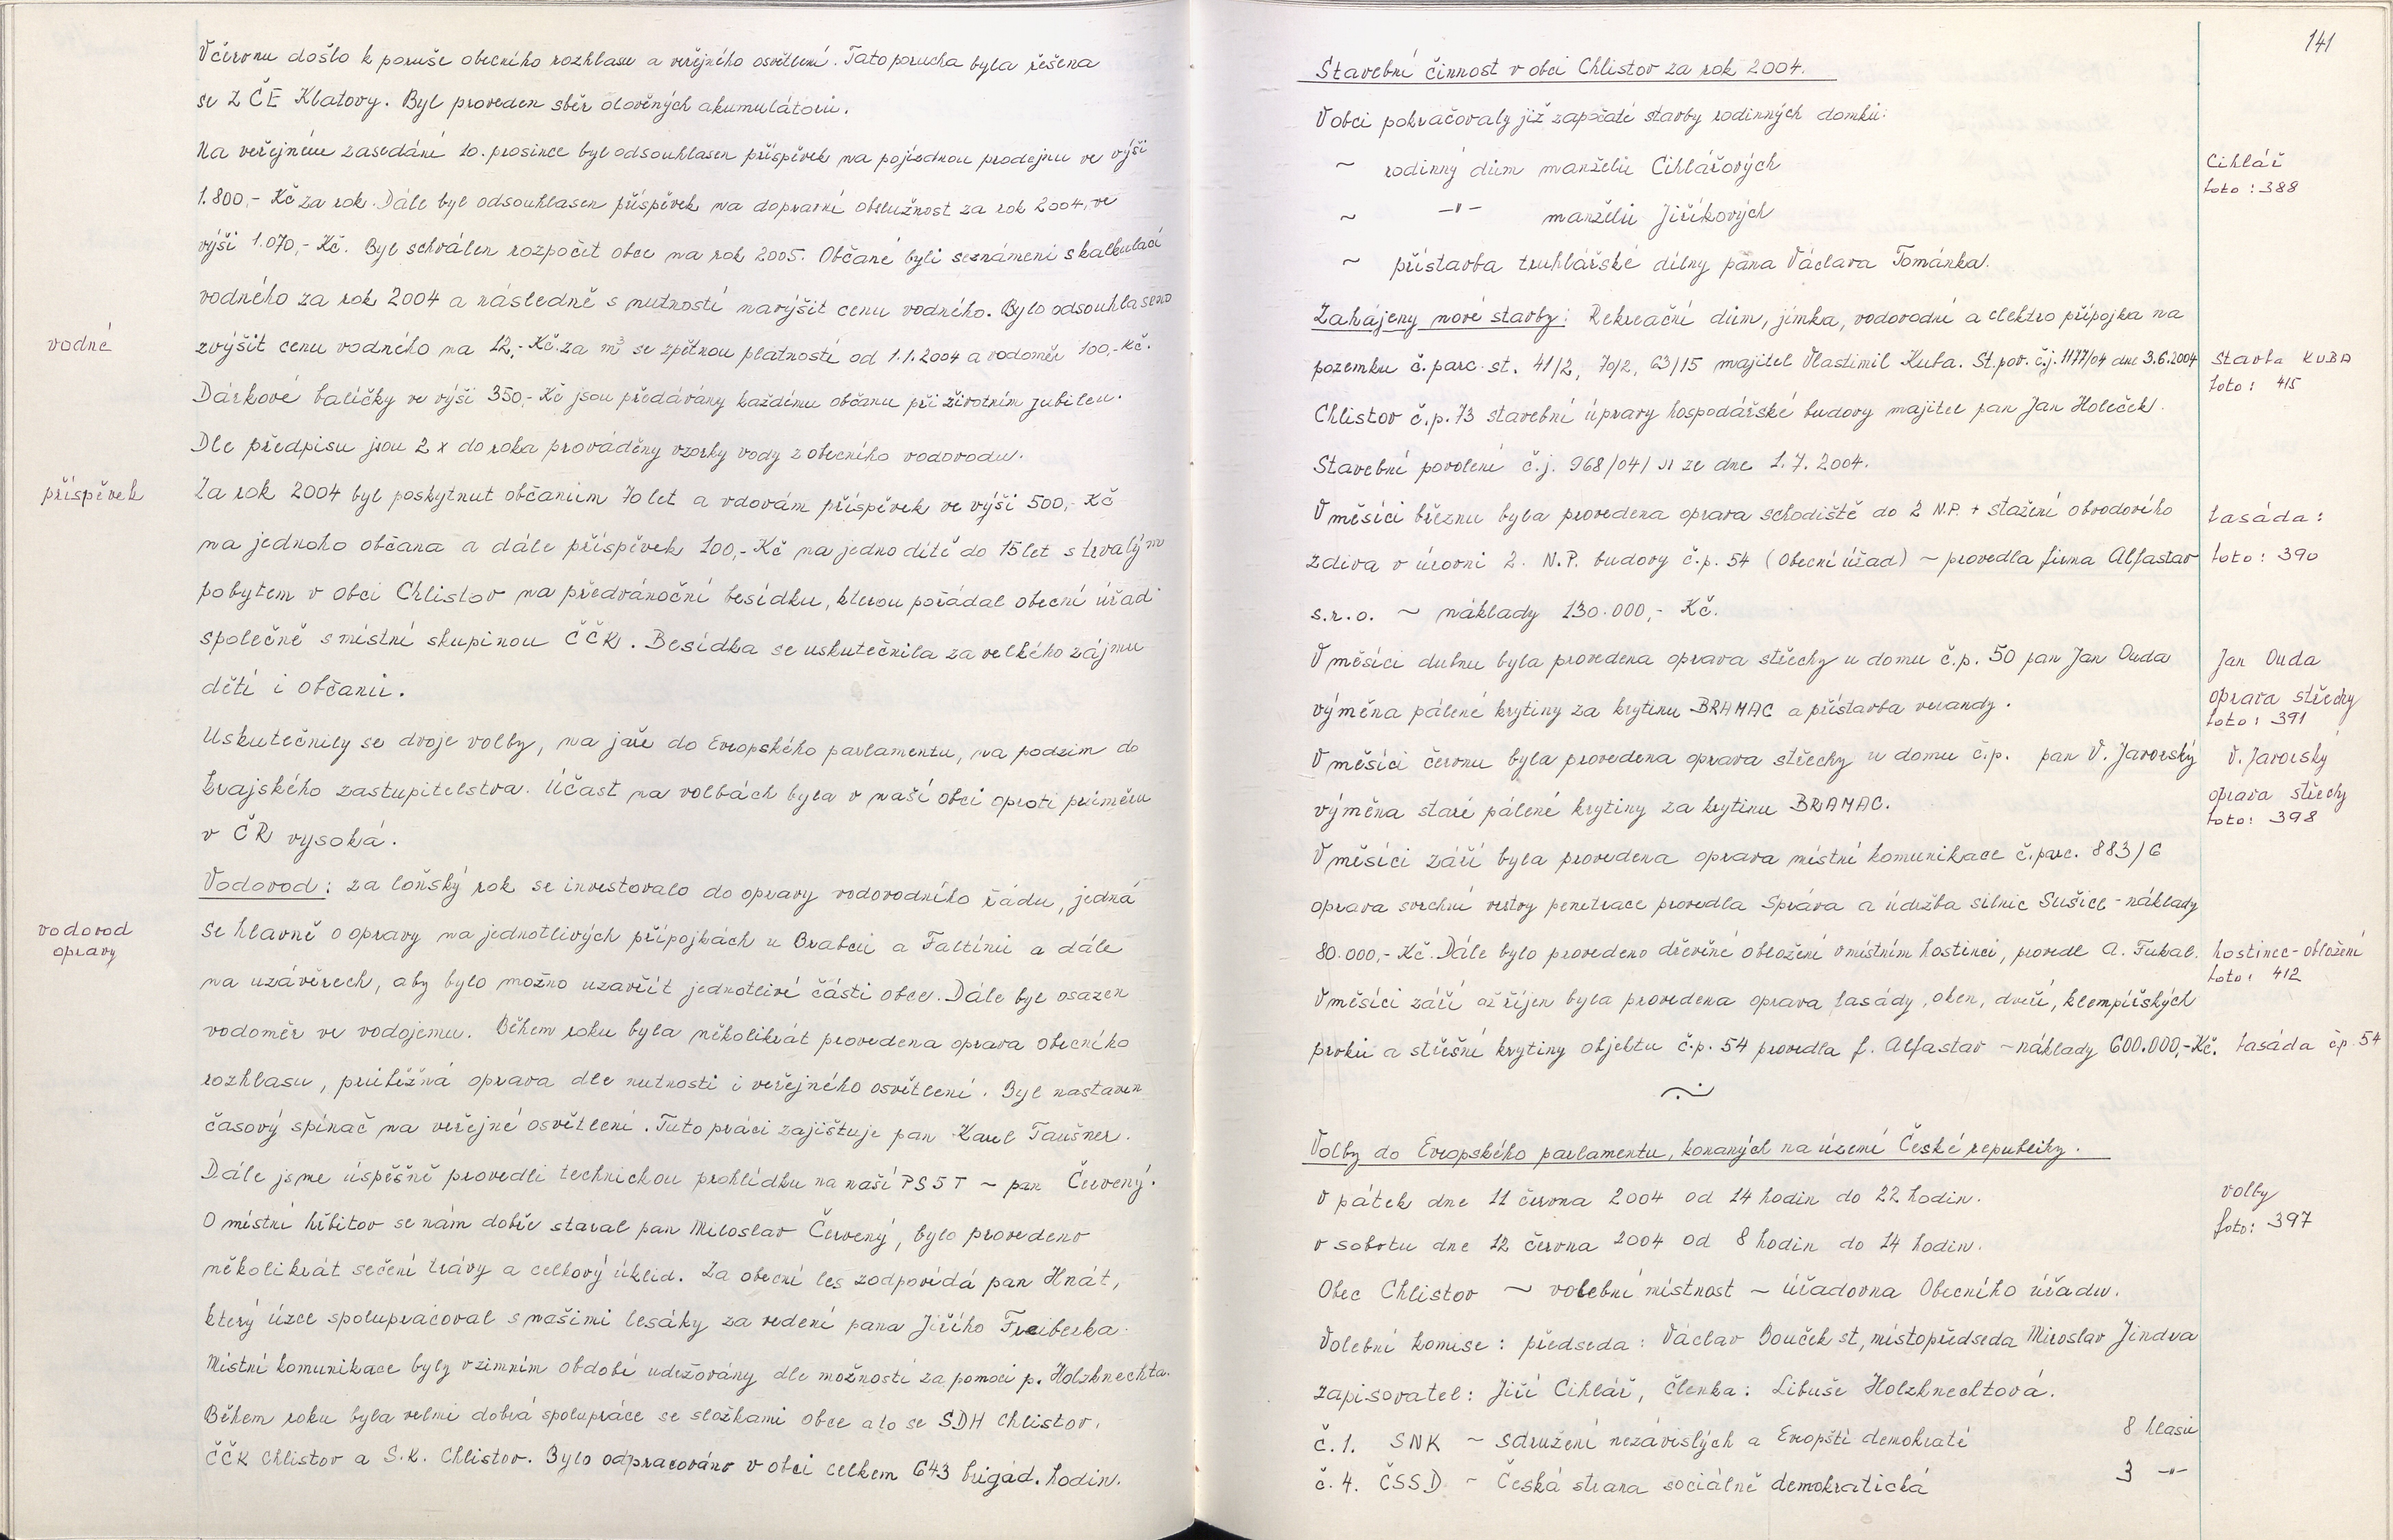 V červnu došlo k poruše obecního rozhlasu a veřejného osvětlení. Tato porucha byla řešena
se ZČE Klatovy. Byl proveden sběr olověných akumulátorů.
Na veřejném zasedání 10. prosince byl odsouhlasen příspěvek na pojízdnou prodejnu ve výši
1.800,- Kč za rok. Dále byl odsouhlasen příspěvek na dopravní obslužnost za rok 2004, ve
výši 1.070,- Kč. Byl schválen rozpočet obce na rok 2005. Občané byli seznámeni s kalkulací
vodného za rok 2004 a následně s nutností navýšit cenu vodného. Bylo odsouhlaseno
vodné
zvýšit cenu vodného na 12,- Kč za m³ se zpětnou platností od 1.1.2004 a vodoměr 100,- Kč.
Dárkové balíčky ve výši 350,- Kč jsou předávány každému občanu při životním jubileu.
Dle předpisu jsou 2 x do roka prováděny vzorky vody z obecního vodovodu.
příspěvek
Za rok 2004 byl poskytnut občanům 70 let a vdovám příspěvek ve výši 500,- Kč
na jednoho občana a dále příspěvek 100,- Kč na jedno dítě do 15 let s trvalým
pobytem v obci Chlistov na předvánoční besídku, kterou pořádal obecní úřad
společně s místní skupinou ČČK. Besídka se uskutečnila za velkého zájmu
dětí i občanů.
Uskutečnily se dvoje volby, na jaře do Evropského parlamentu, na podzim do
krajského zastupitelstva. Účast na volbách byla v naší obci oproti průměru
v ČR vysoká.
Vodovod: za loňský rok se investovalo do opravy vodovodního řádu, jedná
vodovod
opravy
se hlavně o opravy na jednotlivých přípojkách u Brabců a Faltínů a dále
na uzávěrech, aby bylo možno uzavřít jednotlivé části obce. Dále byl osazen
vodoměr ve vodojemu. Během roku byla několikrát provedena oprava obecního
rozhlasu, průběžná oprava dle nutnosti i veřejného osvětlení. Byl nastaven
časový spínač na veřejné osvětlení. Tuto práci zajištuje pan Karel Taušner.
Dále jsme úspěšně provedli technickou prohlídku na naší PS 5 T ~ pan Červený.
O místní hřbitov se nám dobře staral pan Miloslav Červený, bylo provedeno
několikrát sečení trávy a celkový úklid. Za obecní les zodpovídá pan Hnát,
který úzce spolupracoval s našimi lesáky za vedení pana Jiřího Freiberka.
Místní komunikace byly v zimním období udržovány dle možností za pomoci p. Holzknechta.
Během roku byla velmi dobrá spolupráce se složkami obce a to se SDH Chlistov,
ČČK Chlistov a S.K. Chlistov. Bylo odpracováno v obci celkem 643 brigád. hodin.
141
Stavební činnost v obci Chlistov za rok 2004.
V obci pokračovaly již započaté stavby rodinných domků:
~ rodinný dům manželů Cihlářových
Cihlář
foto: 388
~ -"- manželů Jiříkových
~ přístavba truhlářské dílny pana Václava Tománka.
Zahájeny nové stavby: Rekreační dům, jímka, vodovodní a elektro přípojka na
pozemku č. parc. st. 41/2, 70/2, 63/15 majitel Vlastimil Kuba. St. pov. č.j. 1177/04 dne 3.6.2004
stavba KUBA
foto: 415
Chlistov č.p. 73 stavební úpravy hospodářské budovy majitel pan Jan Holeček.
Stavební povolení č.j. 968/04/ ze dne 1.7. 2004.
V měsíci březnu byla provedena oprava schodiště do 2 N.P. + stažení obvodového
fasáda:
zdiva v úrovni 2. N.P. budovy č.p. 54 (Obecní úřad) ~ provedla firma Alfastav
foto: 390
s.r.o. ~ náklady 130.000,- Kč.
V měsíci dubnu byla provedena oprava střechy u domu č.p. 50 pan Jan Duda
Jan Duda
oprava střechy
foto: 391
výměna pálené krytiny za krytinu BRAMAC a přístavba verandy.
V měsíci červnu byla provedena oprava střechy u domu č.p. pan V. Javorský
V. Javorský
oprava střechy
foto: 398
výměna staré pálené krytiny za krytinu BRAMAC.
V měsíci září byla provedena oprava místní komunikace č. parc. 883/6
oprava svrchní vrstvy penetrace provedla Správa a údržba silnic Sušice - náklady
80.000,- Kč. Dále bylo provedeno dřevěné obložení v místním hostinci, provedl A. Fukal.
hostinec - obložení
foto: 412
V měsíci září až říjen byla provedena oprava fasády, oken, dveří, klempířských
prvků a střešní krytiny objektu č.p. 54 provedla f. Alfastav ~ náklady 600.000,- Kč.
fasáda čp. 54
Volby do Evropského parlamentu, konaných na území České republiky.
v pátek dne 11 června 2004 od 14 hodin do 22 hodin.
volby
foto: 397
v sobotu dne 12 června 2004 od 8 hodin do 14 hodin.
Obec Chlistov ~ volební místnost ~ úřadovna Obecního úřadu.
Volební komise: předseda: Václav Bouček st, místopředseda Miroslav Jindra
zapisovatel: Jiří Cihlář, členka: Libuše Holzknechtová.
č. 1. SNK ~ Sdružení nezávislých a Evropští demokraté 8 hlasů
č. 4. ČSSD ~ Česká strana sociálně demokratická 3 -"-